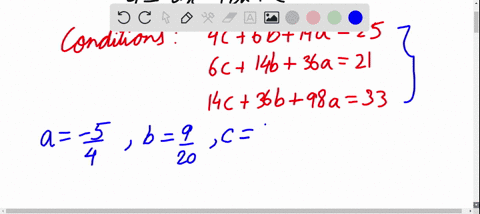 Conditions: 4c+6b+14a = 25
6c + 14b + 36a = 21
14c + 36b + 98a = 33
a = -5/4 , b = 9/20 , c =